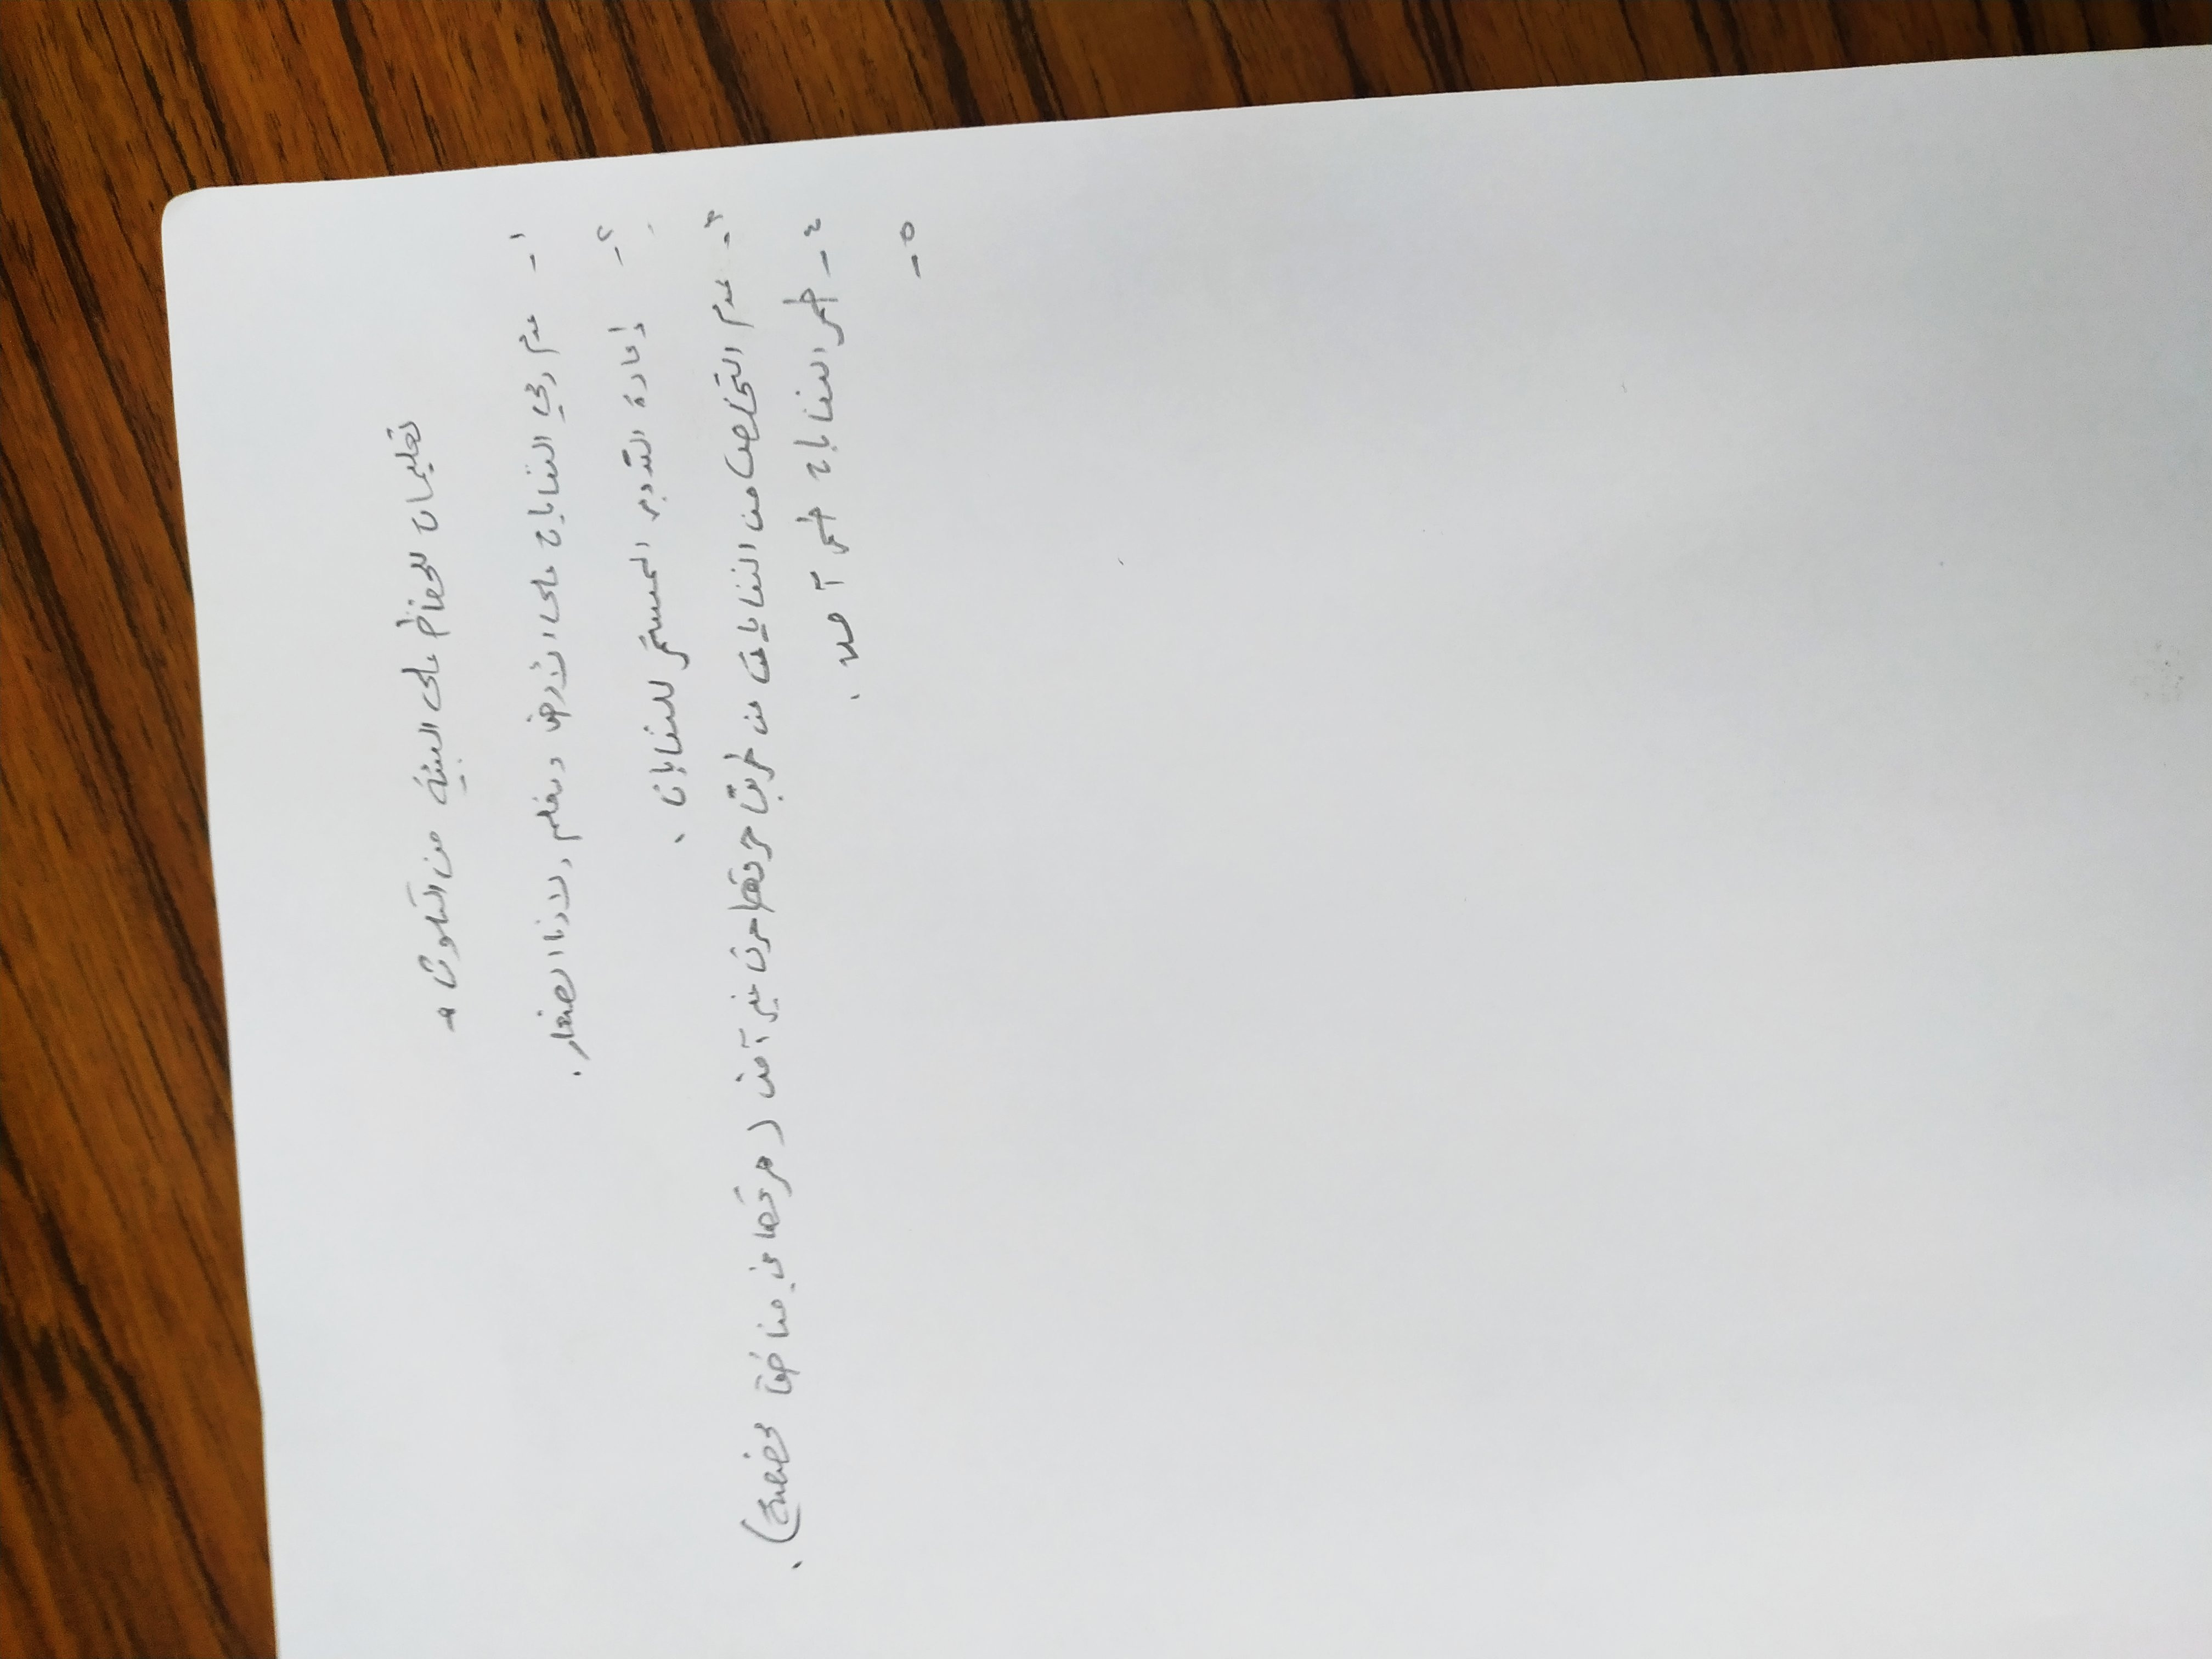 تعليمات للحفاظ على البيئة من التلوث :
١- عدم رمي النفايات على الأرض ونعلم ولادنا الصغار.
٢- إعادة التدوير المستمر للنفايات.
٣- عدم التخلص من النفايات عن طريق حرقها حرق غير آمن (حرقها في مناطق).
٤- طمر النفايات طمر آمن.
٥-